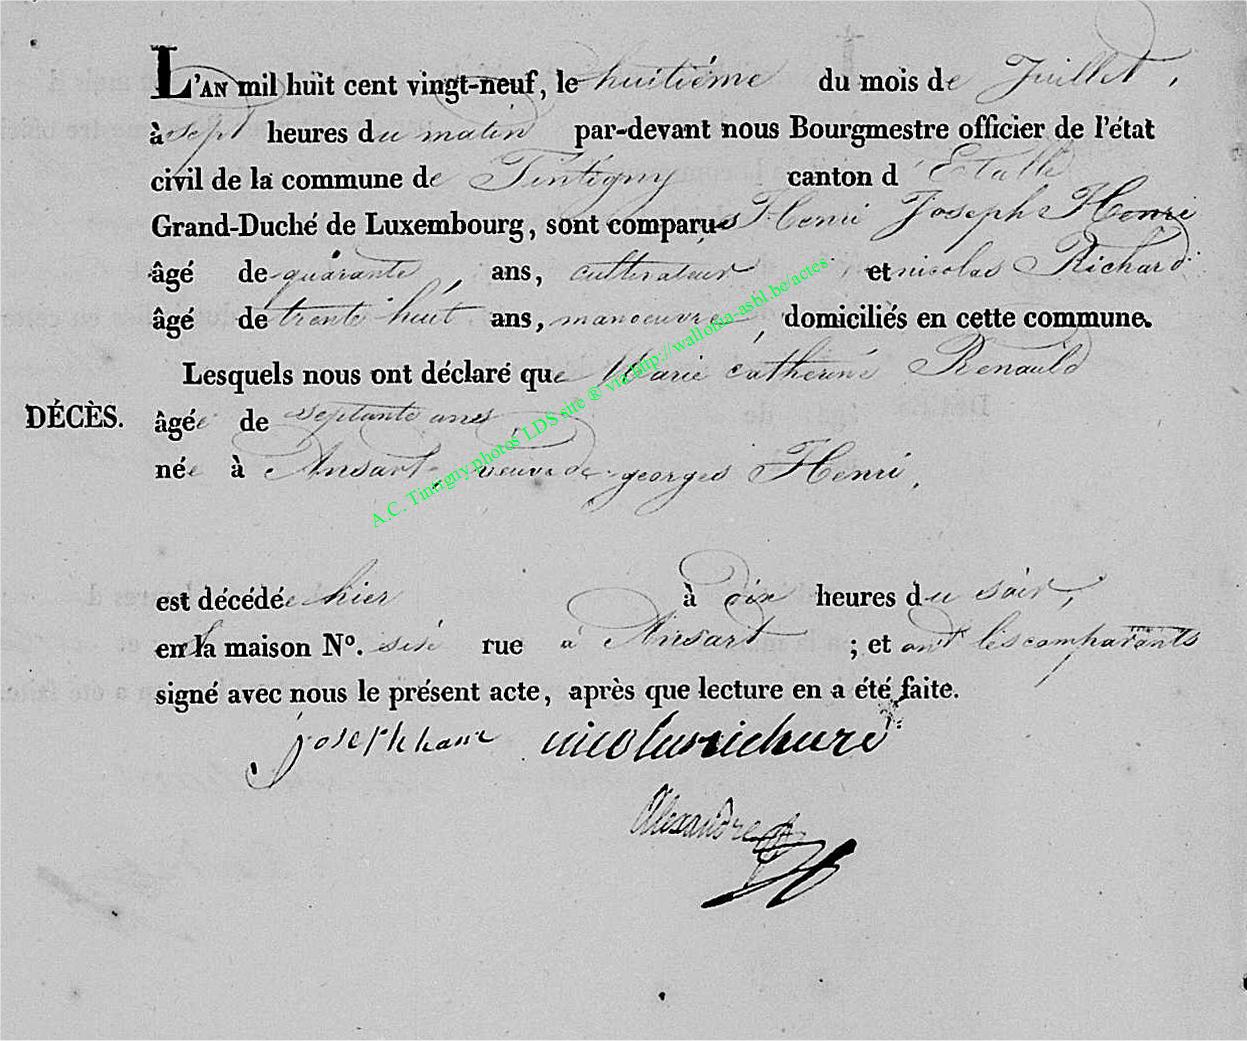 L'AN mil huit cent vingt-neuf, le huitiéme du mois de Juillet,
à sept heures du matin par-devant nous Bourgmestre officier de l'état
civil de la commune de Tintigny canton d'Etalle
Grand-Duché de Luxembourg, sont comparus Henri Joseph Henri
âgé de quarante ans, cultivateur et nicolas Richard
âgé de trente huit ans, manoeuvre, domiciliés en cette commune.
Lesquels nous ont déclaré que Marie catherine Renauld
DÉCÈS. âgée de septante ans,
née à Ansart, veuve de georges Henri,
est décédée hier à dix heures du soir,
en la maison N°. sise rue à Ansart ; et ont les comparants
signé avec nous le présent acte, après que lecture en a été faite.
joseph nicolas richard
Alexandre
A.C. Tintigny photos LDS site ® via http://wallonia-asbl.be/actes